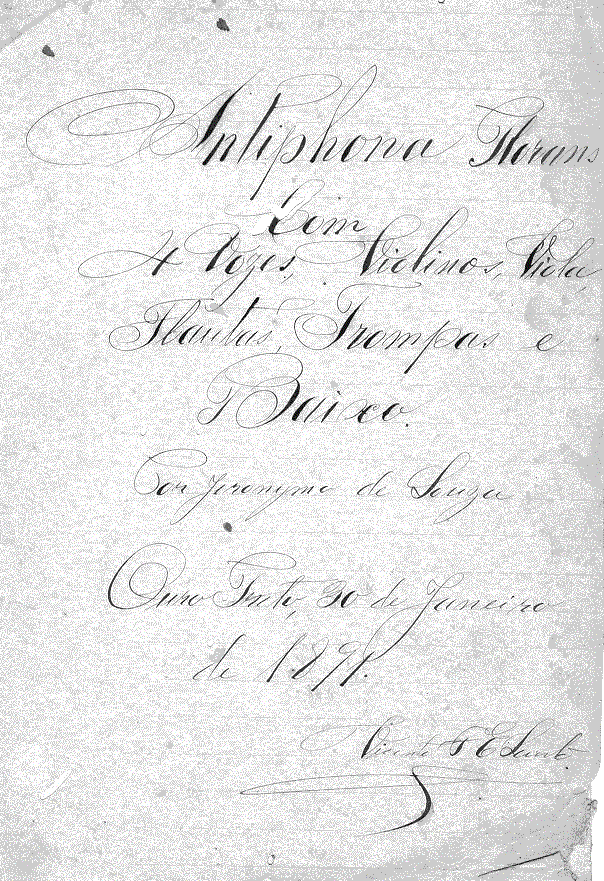 Antiphona Florans
Com
4 Vozes, Violinos, Viola,
Flautas, Trompas e
Baixo.
Por Jeronymo de Souza
Ouro Preto, 30 de Janeiro
de 1891.
Vicente F E Santo